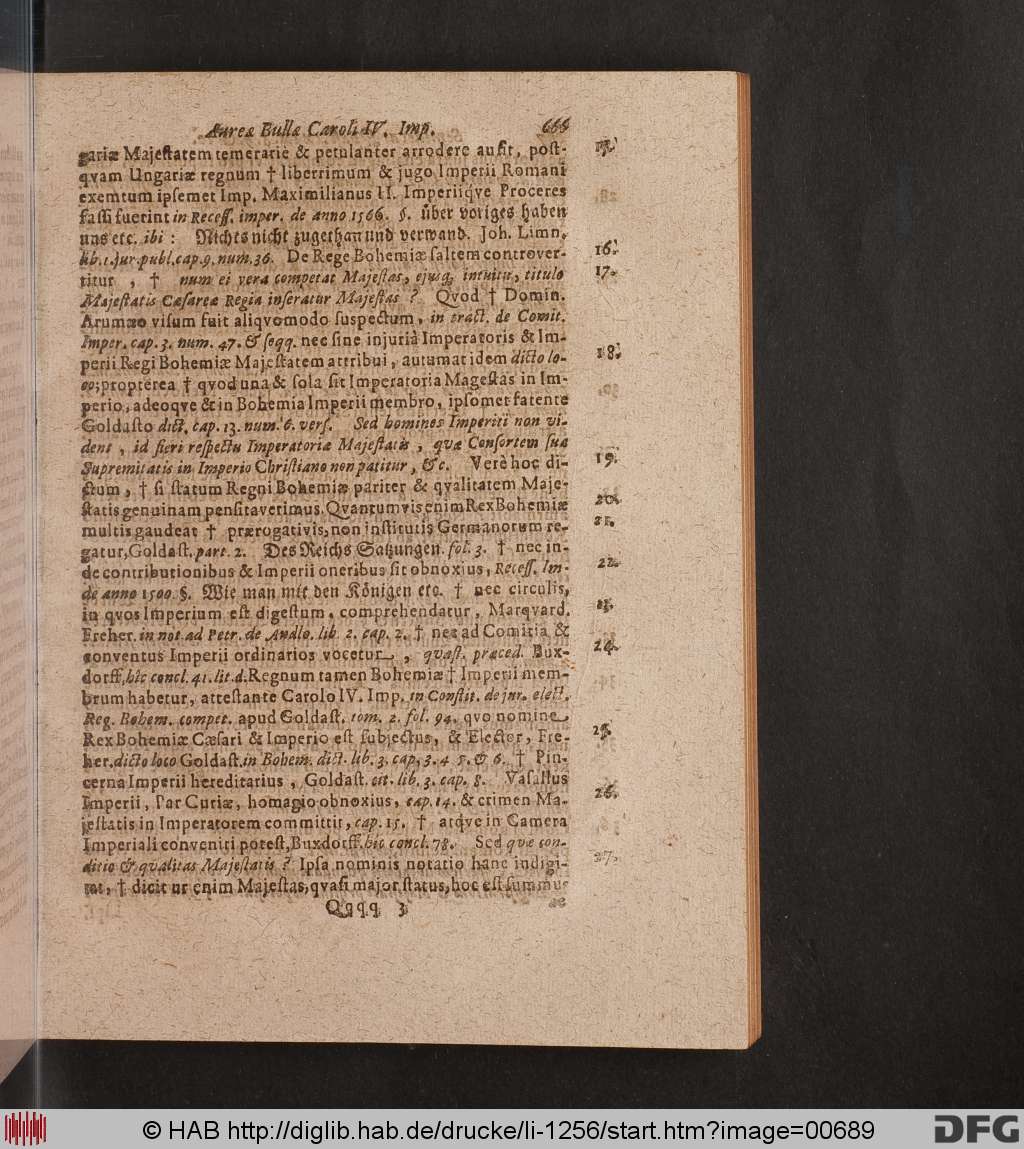 Aureæ Bullæ Caroli IV. Imp. 666
gariæ Majeſtatem temerariè & petulanter arrodere auſit, poſt-
qvam Ungariæ regnum † liberrimum & jugo Imperii Romani 15.
exemtum ipſemet Imp. Maximilianus II. Imperiiqve Proceres
faſſi fuerint in Receſſ. imper. de anno 1566. §. über voriges haben
uns etc. ibi : Nichts nicht zugethan und verwand. Joh. Limn.
lib. 1. jur. publ. cap. 9. num. 36. De Rege Bohemiæ ſaltem controver- 16.
titur, † num ei vera competat Majeſtas, ejusq; intuitu, titulo 17.
Majeſtatis Cæſareæ Regia inſeratur Majeſtas ? Qvod † Domin.
Arumæo viſum fuit aliqvomodo ſuspectum, in tract. de Comit.
Imper. cap. 3. num. 47. & ſeqq. nec ſine injuriâ Imperatoris & Im-
perii Regi Bohemiæ Majeſtatem attribui, autumat idem dicto lo- 18.
co; propterea † qvod una & ſola ſit Imperatoria Mageſtas in Im-
perio, adeoqve & in Bohemia Imperii membro, ipſomet fatente
Goldaſto dict. cap. 13. num. 6. verſ. Sed homines Imperiti non vi-
dent, id fieri reſpectu Imperatoriæ Majeſtatis, quæ Conſortem ſuæ
Supremitatis in Imperio Chriſtiano non patitur, &c. Verè hoc di- 19.
ctum, † ſi ſtatum Regni Bohemiæ pariter & qvalitatem Maje-
ſtatis genuinam penſitaverimus. Qvantumvis enim Rex Bohemiæ 20.
multis gaudeat † prærogativis, non inſtitutis Germanorum re- 21.
gatur, Goldaſt. part. 2. Des Reichs Satzungen. fol. 3. † nec in-
de contributionibus & Imperii oneribus ſit obnoxius, Receſſ. Im- 22.
de anno 1500. §. Wie man mit den Königen etc. † nec circulis,
in quos Imperium eſt digeſtum, comprehendatur, Marqvard. 23.
Freher. in not. ad Petr. de Andlo. lib. 2. cap. 2. † nec ad Comitia &
conventus Imperii ordinarios vocetur, quæſt. præced. Bux- 24.
dorff, hîc concl. 41. lit. d. Regnum tamen Bohemiæ † Imperii mem-
brum habetur, atteſtante Carolo IV. Imp. in Conſtit. de jur. elect.
Reg. Bohem. compet. apud Goldaſt. tom. 2. fol. 94. qvo nomine
Rex Bohemiæ Cæſari & Imperio eſt ſubjectus, & Elector, Fre- 25.
her. dicto loco Goldaſt. in Bohem. dict. lib. 3. cap. 3. 4 5. & 6. † Pin-
cerna Imperii hereditarius, Goldaſt. cit. lib. 3. cap. 8. Vaſallus
Imperii, Par Curiæ, homagio obnoxius, cap. 14. & crimen Ma- 26.
jeſtatis in Imperatorem committit, cap. 15. † atqve in Camera
Imperiali conveniri poteſt, Buxdorff. hîc concl. 78. Sed quæ con-
ditio & qvalitas Majeſtatis ? Ipſa nominis notatio hanc indigi- 27.
tat, † dicitur enim Majeſtas, qvaſi major ſtatus, hoc eſt ſummus
Qqqq 3
© HAB http://diglib.hab.de/drucke/li-1256/start.htm?image=00689
DFG